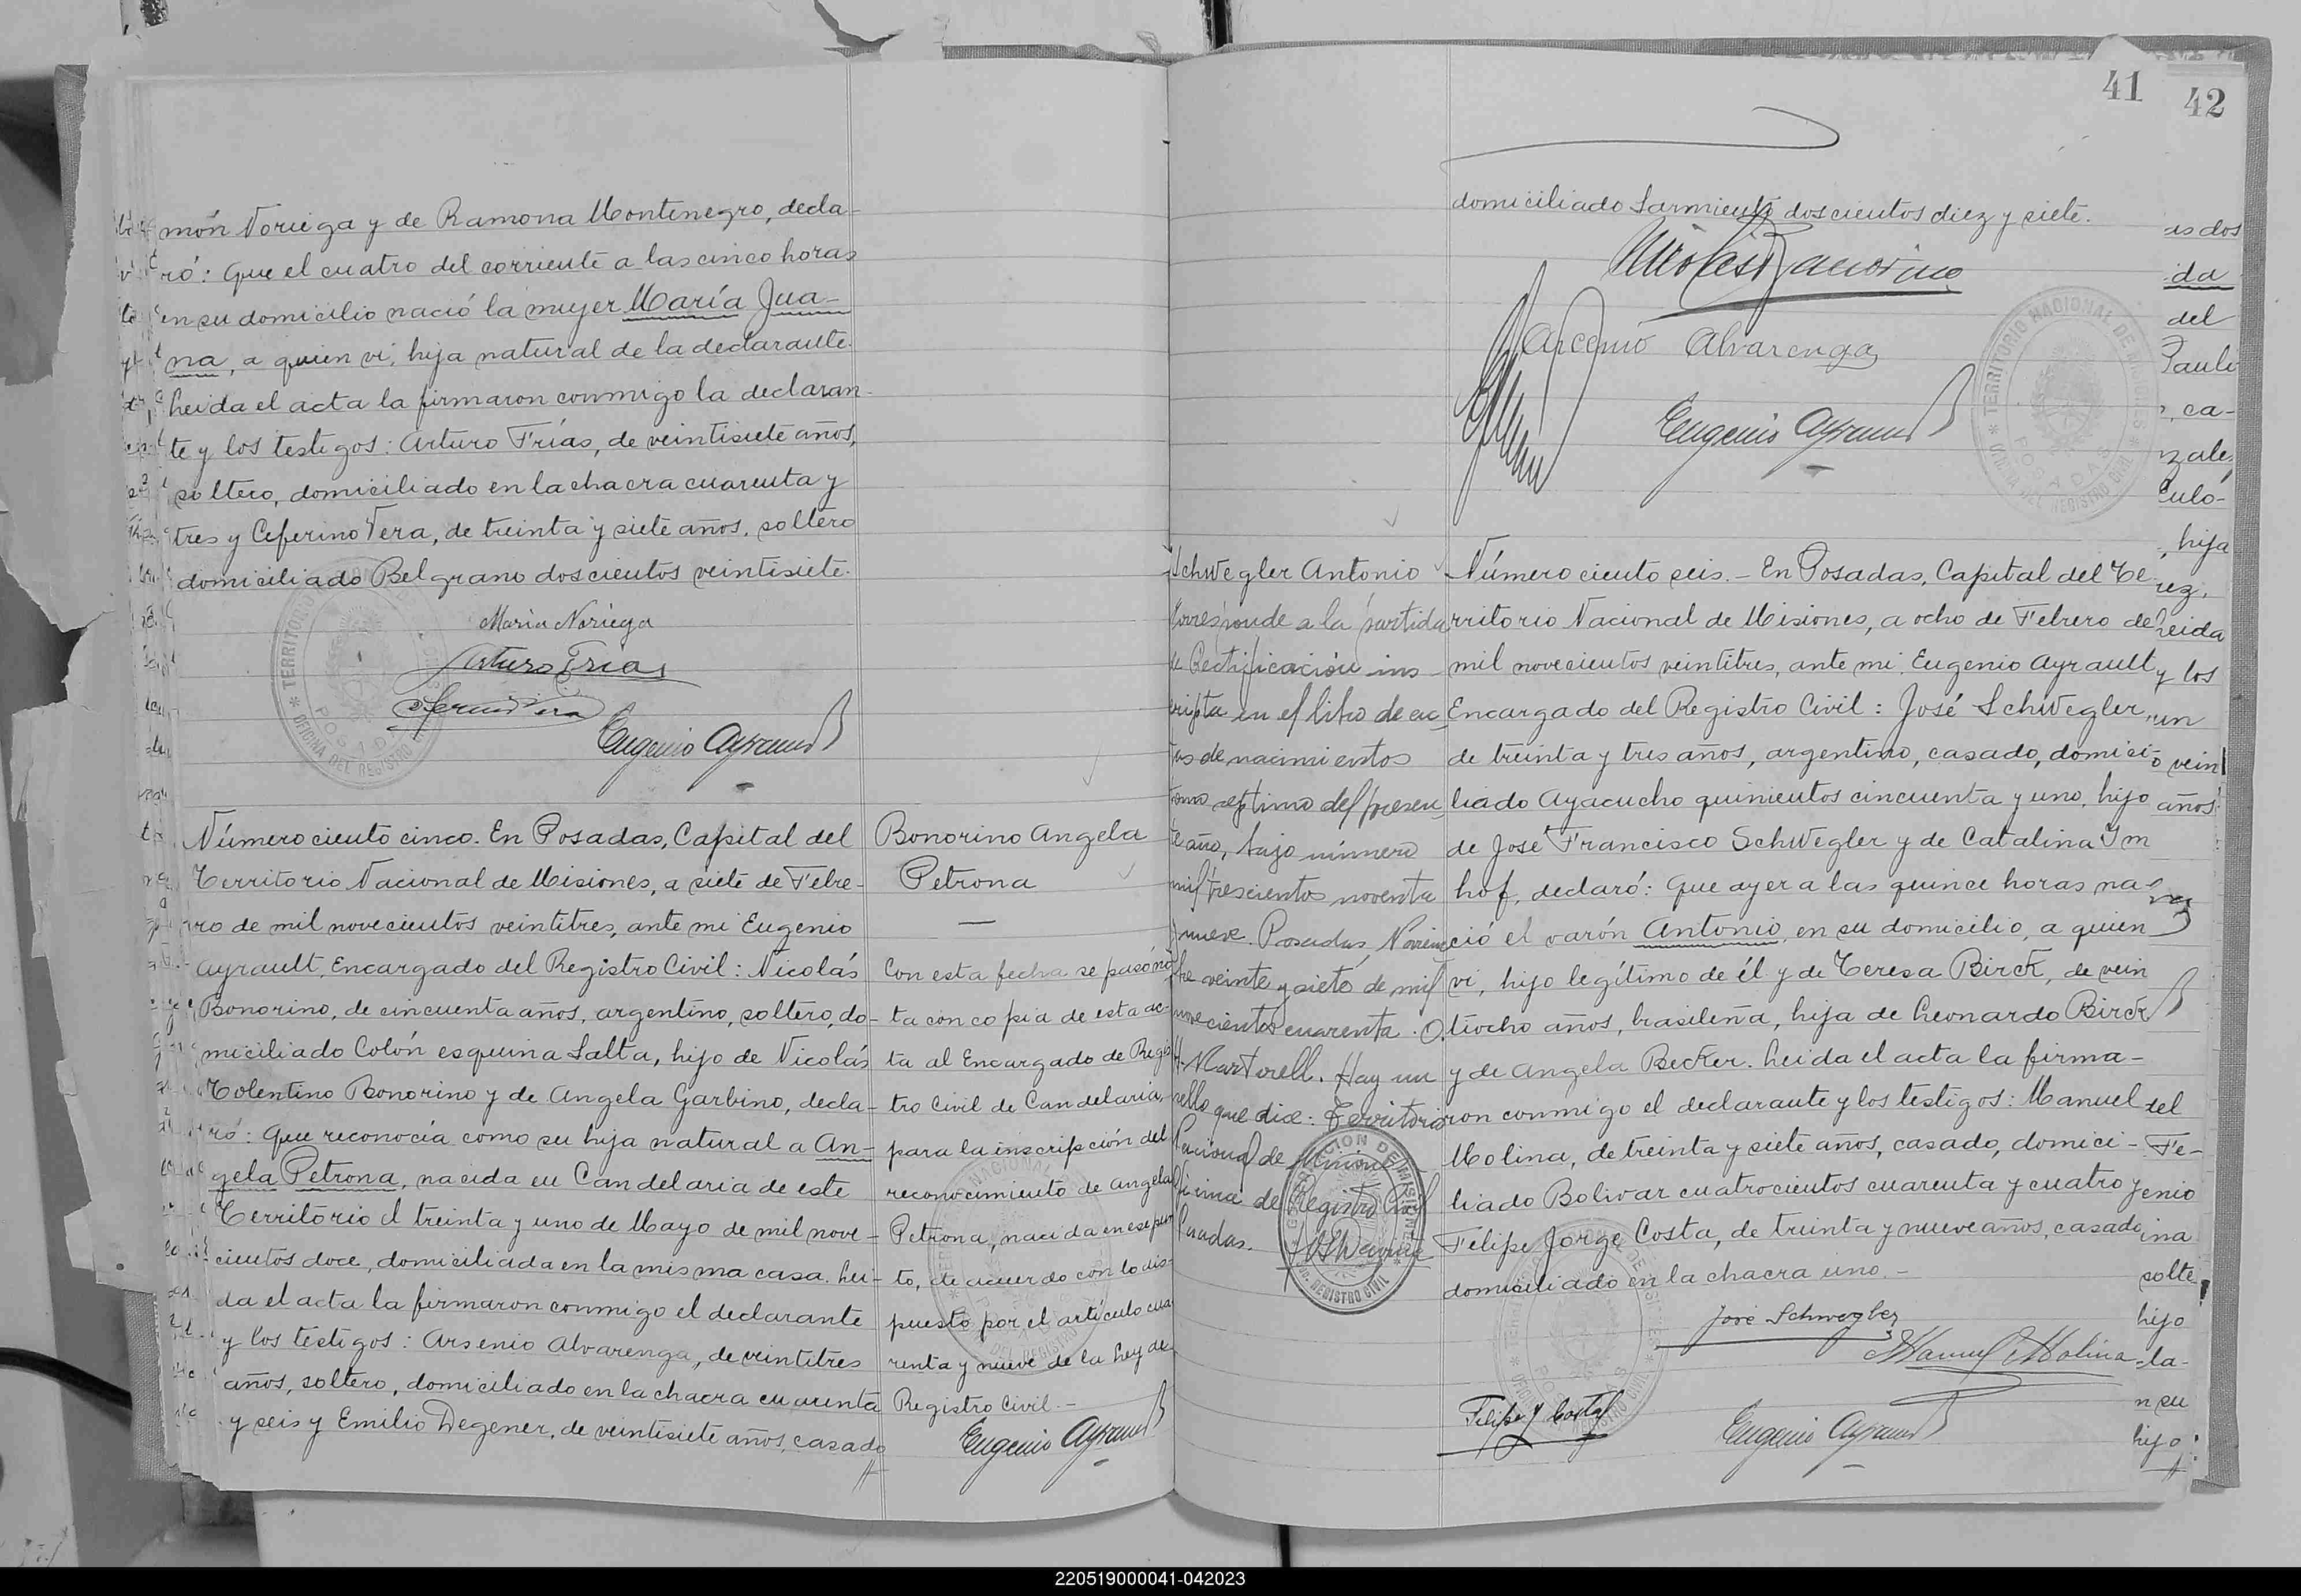 món Noriega y de Ramona Montenegro, decla-
ró: Que el cuatro del corriente a las cinco horas
en su domicilio nació la mujer María Jua-
na, a quien vi, hija natural de la declarante.
Leida el acta la firmaron conmigo la declaran-
te y los testigos: Arturo Frías, de veintisiete años,
soltero, domiciliado en la chacra cuarenta y
tres y Ceferino Vera, de treinta y siete años, soltero
domiciliado Belgrano doscientos veintisiete.
María Noriega
Arturo Frias
Eugenio Ayrault
Número ciento cinco. En Posadas, Capital del
Territorio Nacional de Misiones, a siete de Febre-
ro de mil novecientos veintitres, ante mi Eugenio
Ayrault, Encargado del Registro Civil: Nicolás
Bonorino, de cincuenta años, argentino, soltero, do-
miciliado Colón esquina Salta, hijo de Nicolás
Tolentino Bonorino y de Angela Garbino, decla-
ró: Que reconocía como su hija natural a An-
gela Petrona, nacida en Candelaria de este
Territorio el treinta y uno de Mayo de mil nove-
cientos doce, domiciliada en la misma casa. Lei-
da el acta la firmaron conmigo el declarante
y los testigos: Arsenio Alvarenga, de veintitres
años, soltero, domiciliado en la chacra cuarenta
y seis y Emilio Degener, de veintisiete años, casado
Bonorino Angela
Petrona
—
Con esta fecha se pasó no
ta con copia de esta ac-
ta al Encargado de Regis
tro Civil de Candelaria,
para la inscripción del
reconocimiento de Angela
Petrona, nacida en ese pun
to, de acuerdo con lo dis-
puesto por el artículo cua
renta y nueve de la Ley de
Registro Civil.-
Eugenio Ayrault
41
42
domiciliado Sarmiento doscientos diez y siete.
Nicolás Bonorino
Arcenio Alvarenga
Eugenio Ayrault
TERRITORIO NACIONAL DE MISIONES
POSADAS
OFICINA DEL REGISTRO CIVIL
Schwegler Antonio
Corresponde a la partida
de Rectificación ins-
cripta en el libro de ac
tas de nacimientos
tomo septimo del presen
te año, bajo número
mil trescientos noventa
y nueve. Posadas, Noviem
bre veinte y siete de mil
novecientos cuarenta. O.
H. Martorell. Hay un
sello que dice: Territorio
Nacional de Misiones
Oficina de Registro Civil
Posadas.
Número ciento seis.- En Posadas, Capital del Te-
rritorio Nacional de Misiones, a ocho de Febrero de
mil novecientos veintitres, ante mi Eugenio Ayrault
Encargado del Registro Civil: José Schwegler,
de treinta y tres años, argentino, casado, domici-
liado Ayacucho quinientos cincuenta y uno, hijo
de José Francisco Schwegler y de Catalina Im
hof, declaró: Que ayer a las quince horas na-
ció el varón Antonio, en su domicilio, a quien
vi, hijo legítimo de él y de Teresa Birck, de vein
tiocho años, brasileña, hija de Leonardo Birck
y de Angela Becker. Leida el acta la firma-
ron conmigo el declarante y los testigos: Manuel
Molina, de treinta y siete años, casado, domici-
liado Bolivar cuatrocientos cuarenta y cuatro y
Felipe Jorge Costa, de treinta y nueve años, casado
domiciliado en la chacra uno.-
José Schwegler
Manuel Molina
Felipe J Costa
Eugenio Ayrault
es dos
da
del
Paulo
, ca-
nzale
Culo-
, hija
rez.
Leida
y los
un
o vein
años
del
Fe-
enio
ina
solte
hijo
la-
n su
hijo
220519000041-042023